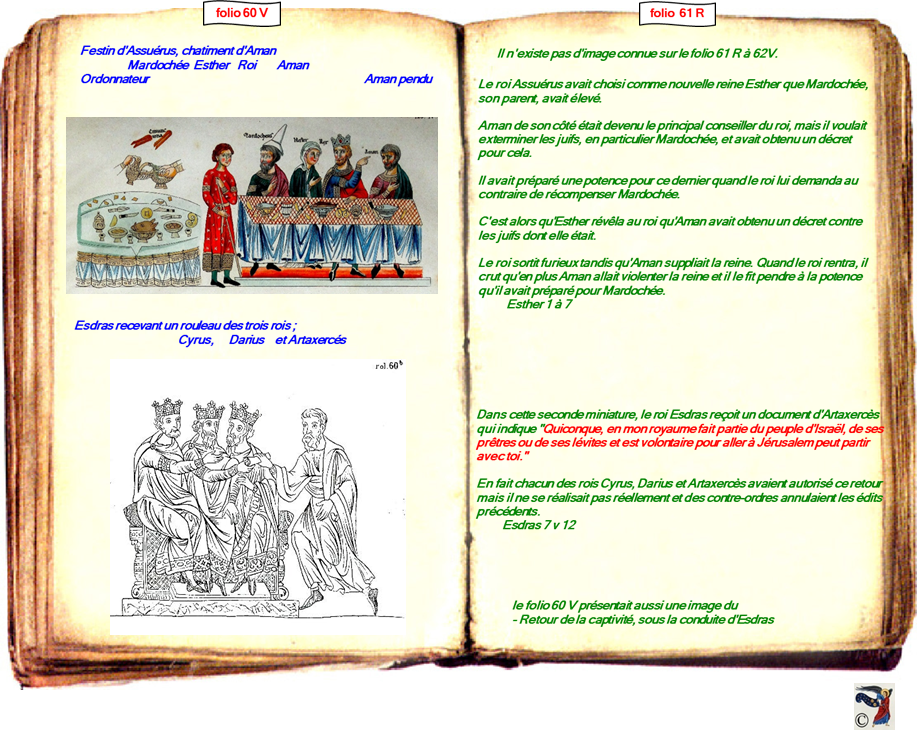 folio 60 V
Festin d'Assuérus, chatiment d'Aman
Mardochée Esther Roi Aman
Ordonnateur Aman pendu
Mardocheus
Hester
Rex
Aman
Esdras recevant un rouleau des trois rois ;
Cyrus, Darius et Artaxercés
fol. 60 b
folio 61 R
Il n'existe pas d'image connue sur le folio 61 R à 62V.
Le roi Assuérus avait choisi comme nouvelle reine Esther que Mardochée,
son parent, avait élevé.
Aman de son côté était devenu le principal conseiller du roi, mais il voulait
exterminer les juifs, en particulier Mardochée, et avait obtenu un décret
pour cela.
Il avait préparé une potence pour ce dernier quand le roi lui demanda au
contraire de récompenser Mardochée.
C'est alors qu'Esther révêla au roi qu'Aman avait obtenu un décret contre
les juifs dont elle était.
Le roi sortit furieux tandis qu'Aman suppliait la reine. Quand le roi rentra, il
crut qu'en plus Aman allait violenter la reine et il le fit pendre à la potence
qu'il avait préparé pour Mardochée.
Esther 1 à 7
Dans cette seconde miniature, le roi Esdras reçoit un document d'Artaxercès
qui indique "Quiconque, en mon royaume fait partie du peuple d'Israël, de ses
prêtres ou de ses lévites et est volontaire pour aller à Jérusalem peut partir
avec toi."
En fait chacun des rois Cyrus, Darius et Artaxercès avaient autorisé ce retour
mais il ne se réalisait pas réellement et des contre-ordres annulaient les édits
précédents.
Esdras 7 v 12
le folio 60 V présentait aussi une image du
- Retour de la captivité, sous la conduite d'Esdras
©